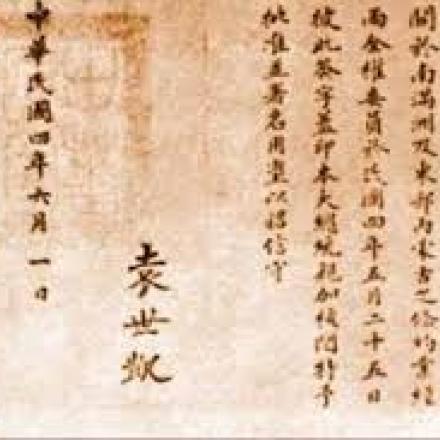 關於南滿洲及東部內蒙古之條約業經
兩全權委員於民國四年五月二十五日
彼此簽字蓋印本大總統親加複閱特予
批准並署名用璽以昭信守
袁世凱
中華民國四年六月一日